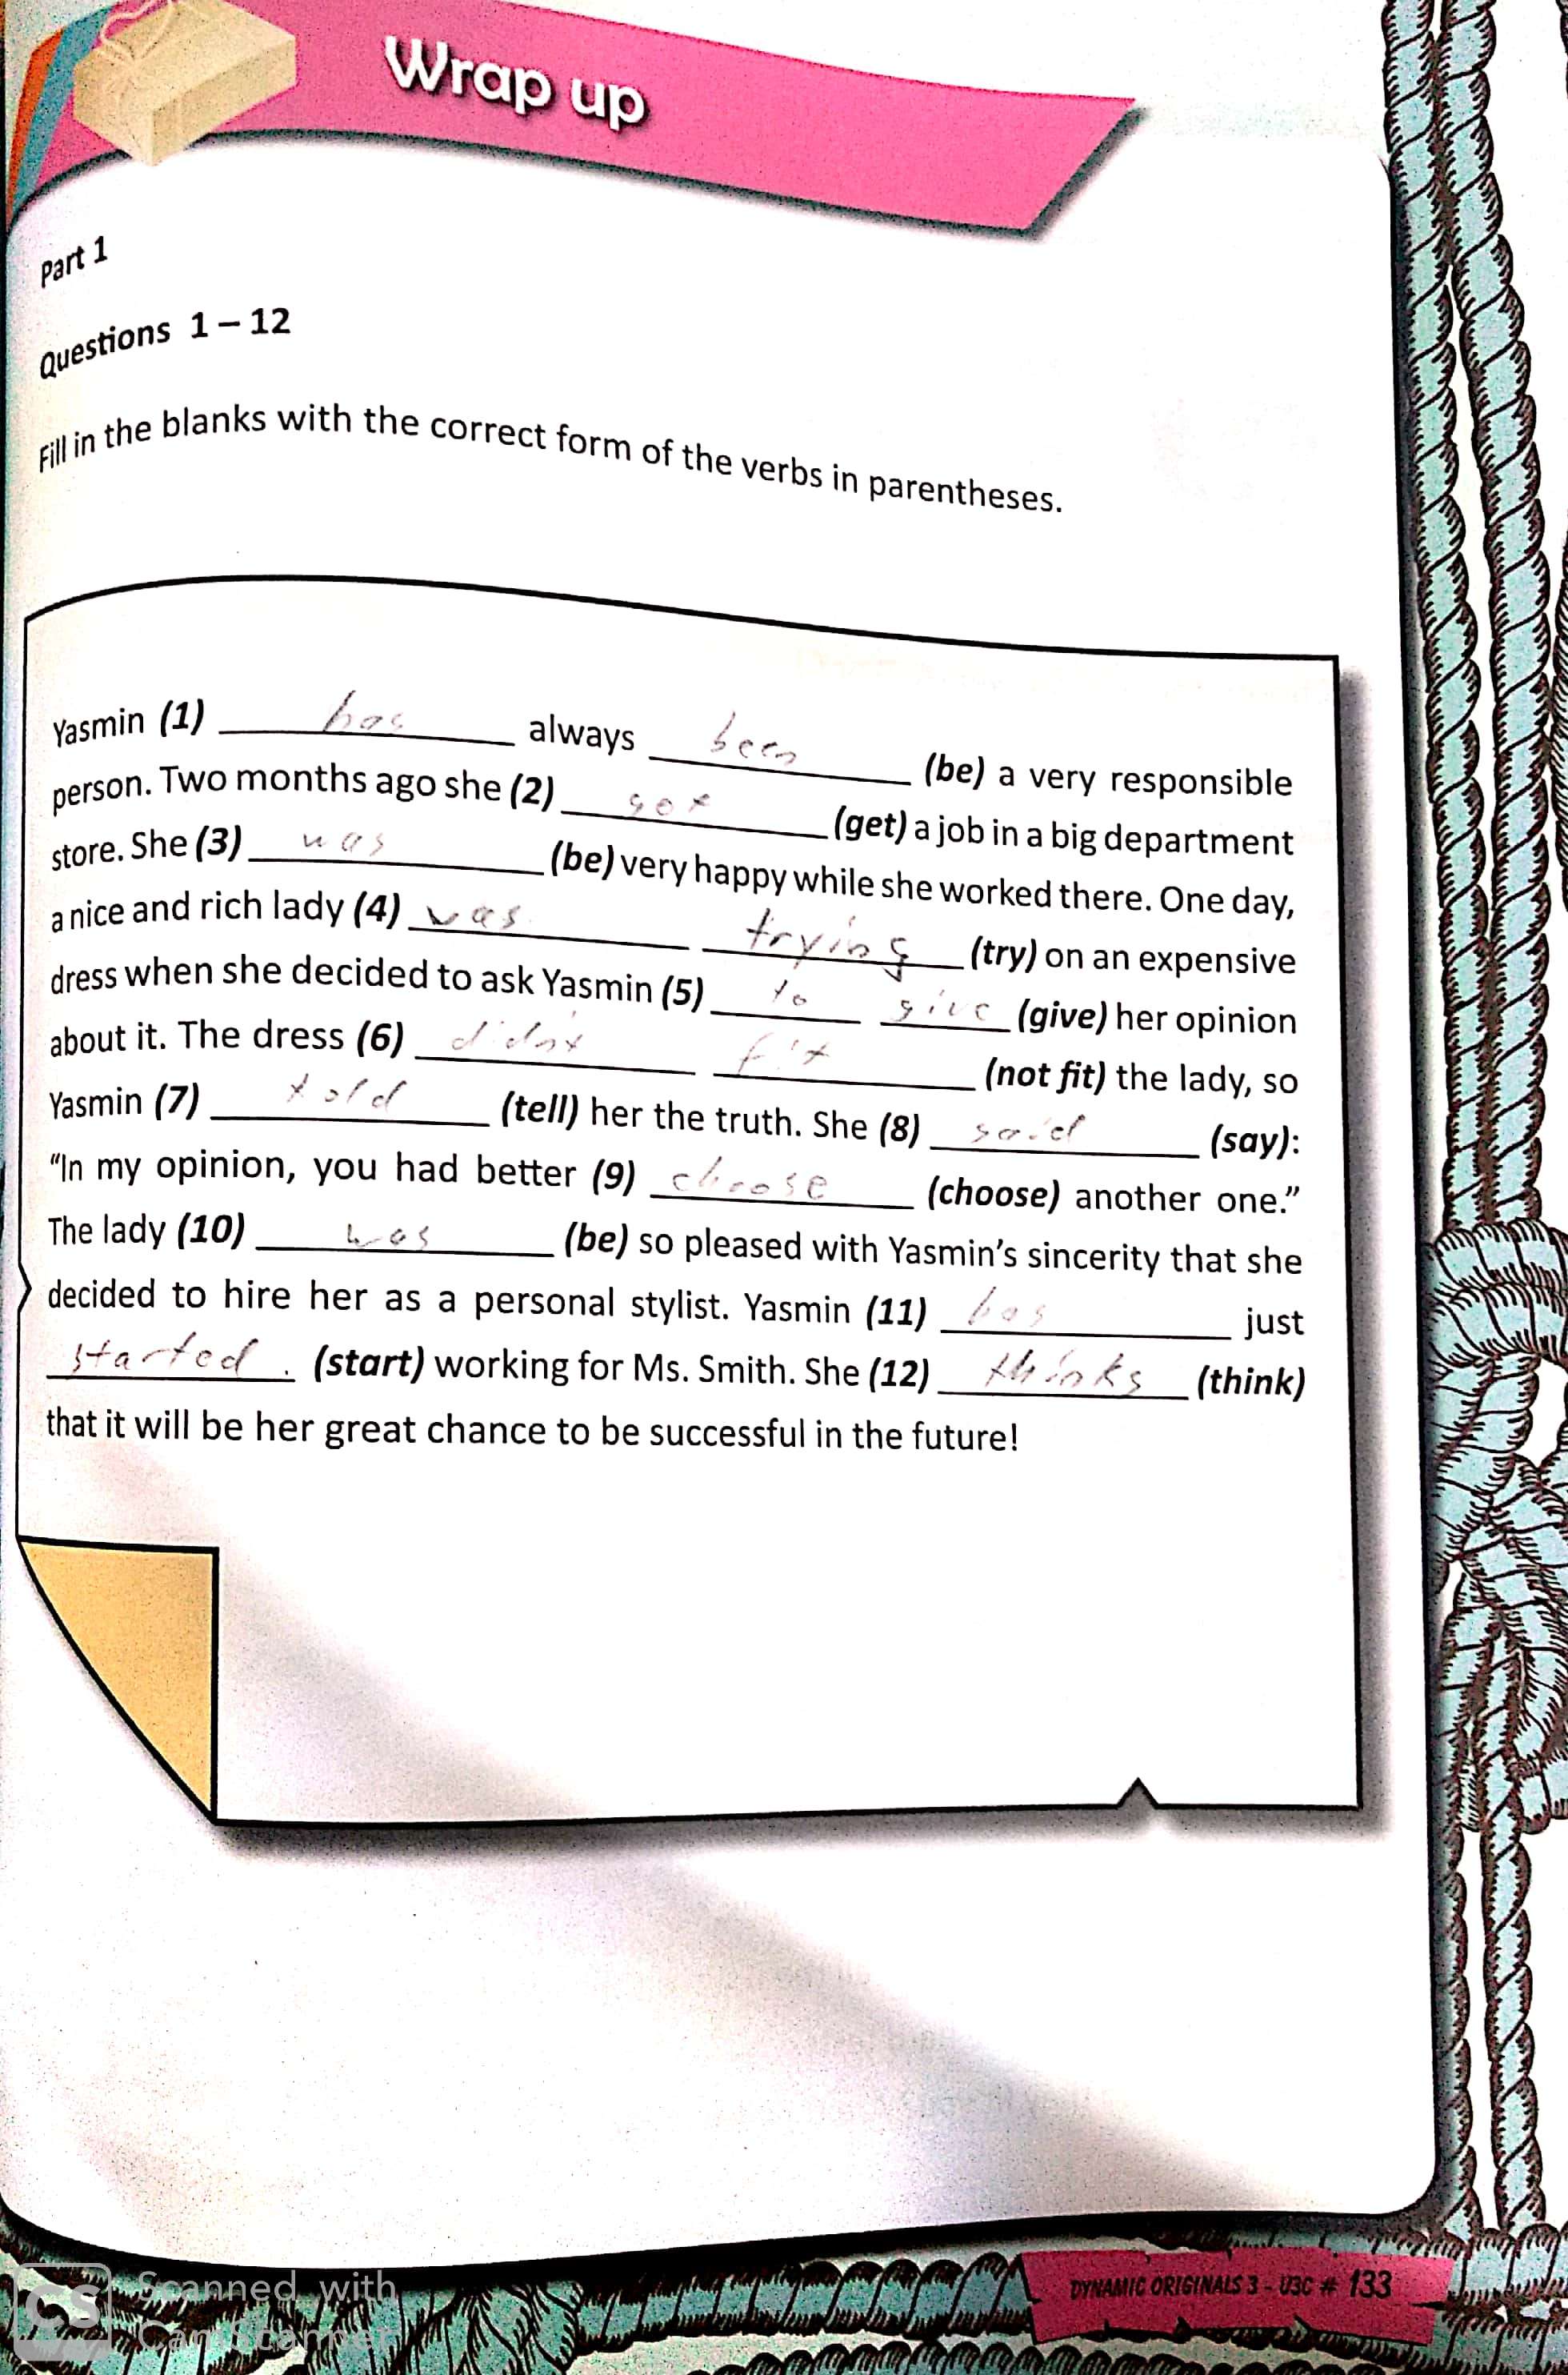 Wrap up
Part 1
Questions 1 – 12
Fill in the blanks with the correct form of the verbs in parentheses.
Yasmin (1) has always been (be) a very responsible
person. Two months ago she (2) got (get) a job in a big department
store. She (3) was (be) very happy while she worked there. One day,
a nice and rich lady (4) was trying (try) on an expensive
dress when she decided to ask Yasmin (5) to give (give) her opinion
about it. The dress (6) didn't fit (not fit) the lady, so
Yasmin (7) told (tell) her the truth. She (8) said (say):
“In my opinion, you had better (9) choose (choose) another one.”
The lady (10) was (be) so pleased with Yasmin’s sincerity that she
decided to hire her as a personal stylist. Yasmin (11) has just
started. (start) working for Ms. Smith. She (12) thinks (think)
that it will be her great chance to be successful in the future!
DYNAMIC ORIGINALS 3 - U3C # 133
CS Scanned with
CamScanner